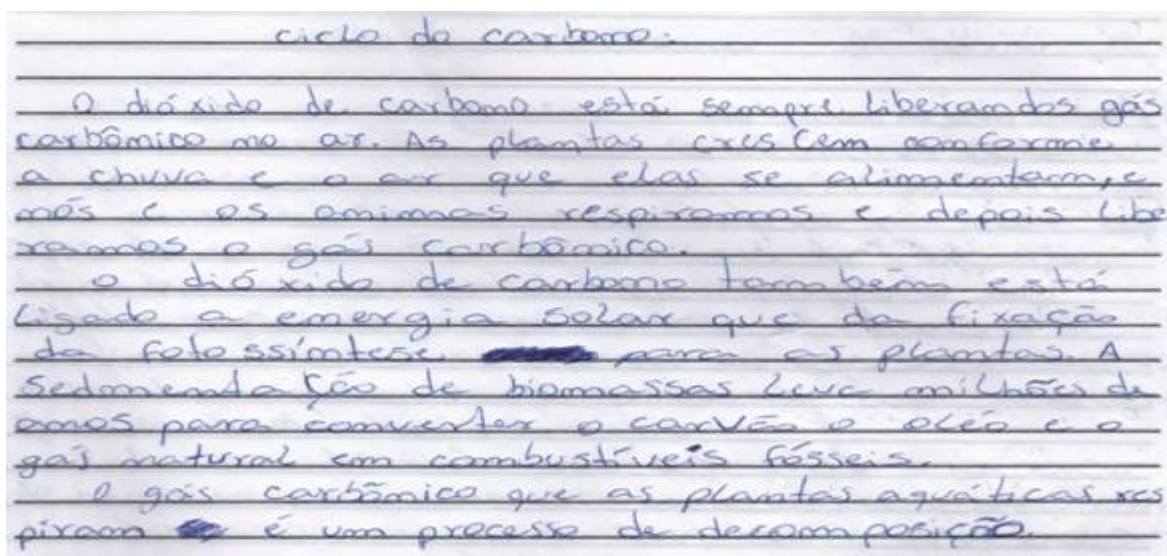 ciclo do carbono:
O dióxido de carbono está sempre liberandos gás
carbônico no ar. As plantas crescem conforme
a chuva e o ar que elas se alimentam, e
nós e os animas respiramos e depois libe
ramos o gás carbônico.
o dióxido de carbono também está
ligado a energia solar que da fixação
da fotossíntese para as plantas. A
sedomentação de biomassas leva milhões de
anos para converter o carvão o oléo e o
gás natural em combustíveis fósseis.
O gás carbônico que as plantas aquáticas res
piram é um processo de decomposição.